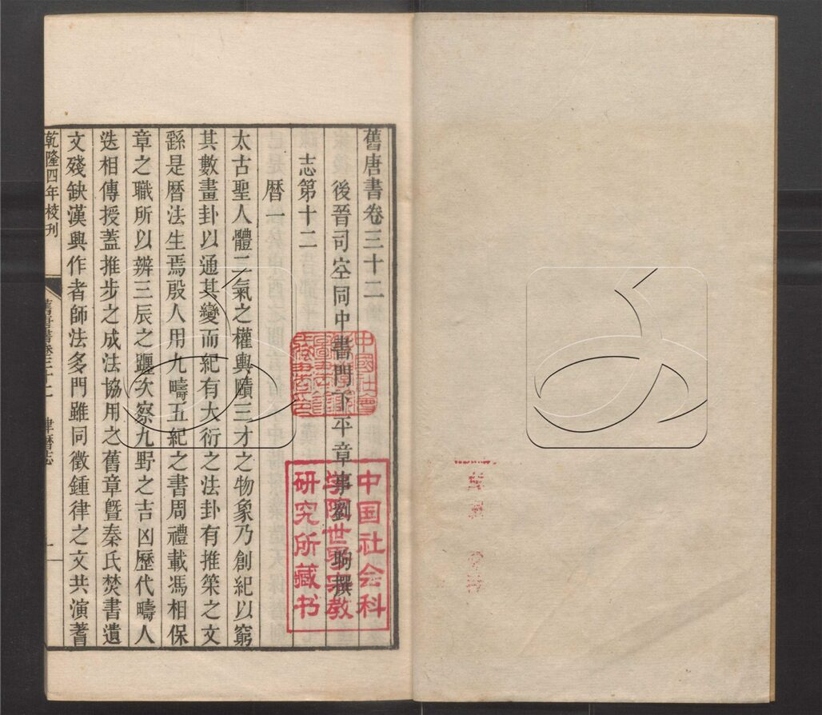 舊唐書卷三十二
後晉司空同中書門下平章事劉　昫撰
志第十二
曆一
太古聖人體二氣之權輿賾三才之物象乃創紀以窮
其數畫卦以通其變而紀有大衍之法卦有推策之文
繇是曆法生焉殷人用九疇五紀之書周禮載馮相保
章之職所以辨三辰之躔次察九野之吉凶歷代疇人
迭相傳授蓋推步之成法協用之舊章暨秦氏焚書遺
文殘缺漢興作者師法多門雖同徵鍾律之文共演蓍
乾隆四年校刊
舊唐書卷三十二
律曆志
一
中国社会科
学院世界宗教
研究所藏书